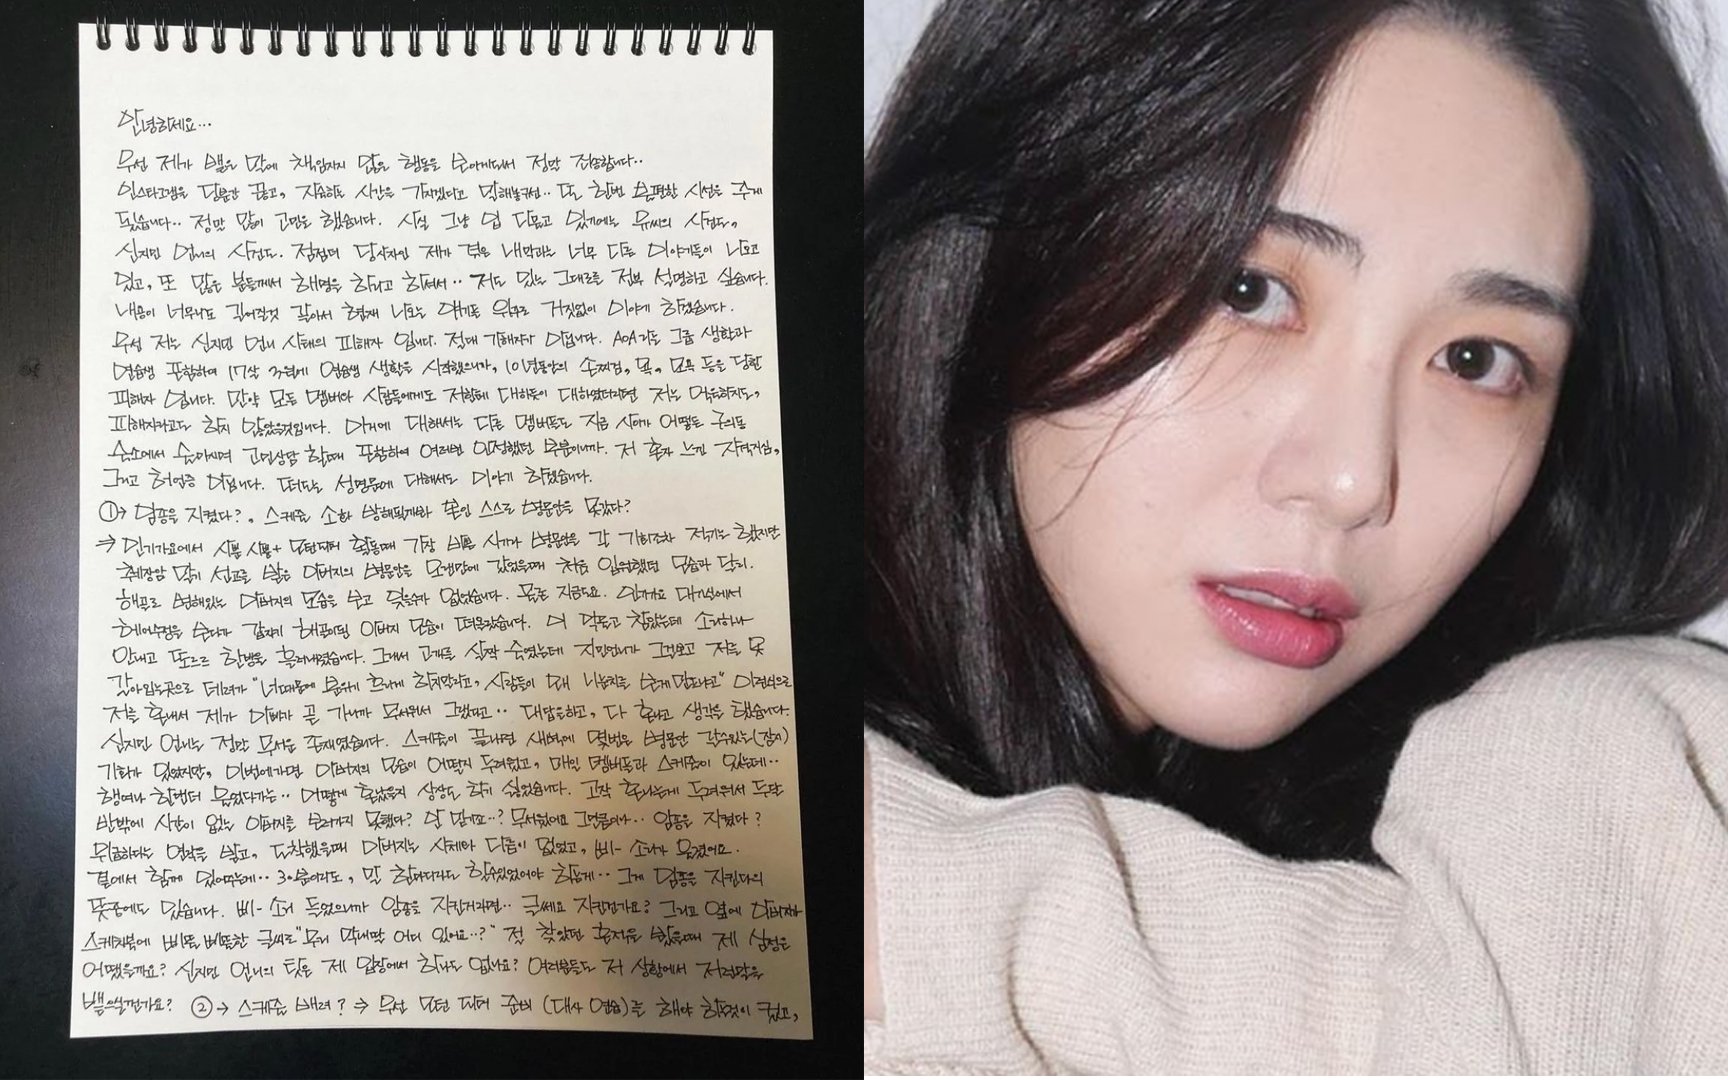 안녕하세요...
우선 제가 뱉은 말에 책임지지 않은 행동을 보이게되서 정말 죄송합니다..
인스타그램을 당분간 끊고, 자숙하는 시간을 가지겠다고 말해놓구선.. 또 한번 불편한 시선을 주게
됐습니다.. 정말 많이 고민을 했습니다. 사실 그냥 입 다물고 있기에는 유씨의 사건도,
신지민 언니의 사건도. 점점더 당사자인 제가 겪은 내막과는 너무 다른 이야기들이 나오고
있고, 또 많은 분들께서 해명을 하라고 하셔서.. 저는 있는 그대로를 전부 설명하고 싶습니다.
내용이 너무나도 길어질것 같아서 현재 나오는 얘기들 위주로 거짓없이 이야기 하겠습니다.
우선 저는 신지민 언니 사태의 피해자 입니다. 절대 가해자가 아닙니다. AOA라는 그룹 생활과
연습생 포함하여 17살 3월에 연습생 생활을 시작했으니까, 10년동안의 손찌검, 욕, 모욕 등을 당한
피해자 입니다. 만약 모든 멤버와 사람들에게도 저한테 대하듯이 대하였더라면 저는 억울하지도,
피해자라고도 하지 않았을것입니다. 이거에 대해서는 다른 멤버들도 지금 사이가 어떻든 구의동
숙소에서 술마시며 고민상담 할때 포함하여 여러번 인정했던 부분이니까. 저 혼자 느낀 자격지심,
그리고 허언증 아닙니다. 떠도는 성명문에 대해서도 이야기 하겠습니다.
①→ 임종을 지켰다?, 스케줄 소화 방해될까봐 본인 스스로 병문안을 못갔다?
⇒ 인기가요에서 사뿐사뿐+ 모던파머 활동때 가장 바쁜 시기라 병문안을 갈 기회조차 적기는 했지만
췌장암 말기 선고를 받은 아버지의 병문안을 오랜만에 갔었을때 처음 입원했던 모습과 달리.
해골로 변해있는 아버지의 모습을 보고 잊을수가 없었습니다. 물론 지금도요. 인기가요 대기실에서
헤어수정을 보다가 갑자기 해골이된 아버지 모습이 떠올랐습니다. 이 악물고 참았는데 소리하나
안내고 또르르 한방울 흘러내렸습니다. 그래서 고개를 살짝 숙였는데 지민언니가 그걸보고 저를 옷
갈아입는곳으로 데려가 "너때문에 분위기 흐리게 하지말라고, 사람들이 왜 니눈치를 봐야 되냐고" 이런식으로
저를 혼내서 제가 아빠가 곧 가니까 무서워서 그랬다고.. 대답을하고, 다 혼나고 생각을 했습니다.
신지민 언니는 정말 무서운 존재였습니다. 스케줄이 끝나면 새벽에 몇번은 병문안 갈수있는(잠시)
기회가 있었지만, 이번에가면 아버지의 모습이 어떨지 두려웠고, 매일 멤버들과 스케줄이 있는데..
행여나 한번더 울었다가는.. 어떻게 혼났을지 상상도 하기 싫었습니다. 고작 혼나는게 두려워서 두달
반밖에 시간이 없는 아버지를 보러가지 못했다? 말 맞겨..? 무서웠어요 그만큼이나.. 임종을 지켰다?
위급하다는 연락을 받고, 도착했을때 아버지는 사체와 다름이 없었고, 삐- 소리가 울렸어요.
곁에서 함께 있어주는게.. 30분이라도, 말 한마디라도 할수있었어야 하는게.. 그게 임종을 지킨다의
뜻중에도 있습니다. 삐- 소리 들었으니까 임종을 지킨거라면.. 글쎄요 지킨건가요? 그리고 옆에 아버지가
스케치북에 삐뚤 삐뚤한 글씨로 "우리 막내딸 어디 있어요..?" 절 찾았던 흔적을 봤을때 제 심정은
어땠을까요? 신지민 언니의 탓은 제 입장에서 하나도 없나요? 여러분들도 저 상황에서 저런말을
뱉으실건가요? ②→ 스케줄 배려? ⇒ 우선 모던 파머 준비 (대사 연습)를 해야 할것이 컸고,